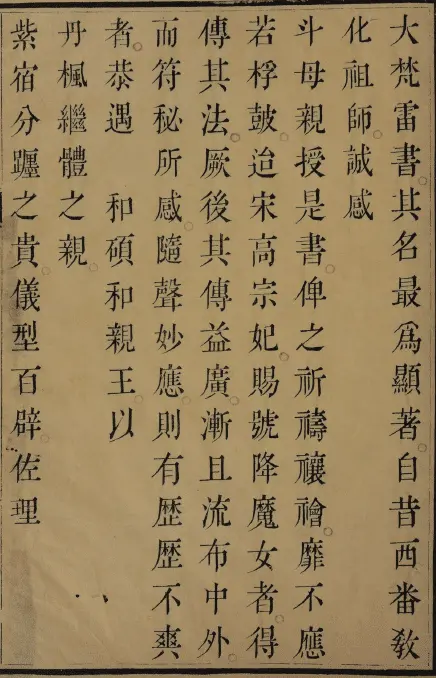 大梵雷書其名最爲顯著自昔西番教
化祖師誠感
斗母親授是書俾之祈禱禳禬靡不應
若桴鼓迨宋高宗妃賜號降魔女者得
傳其法厥後其傳益廣漸且流布中外
而符秘所感隨聲妙應則有歷歷不爽
者恭遇 和碩和親王以
丹楓繼體之親
紫宿分躔之貴儀型百辟佐理